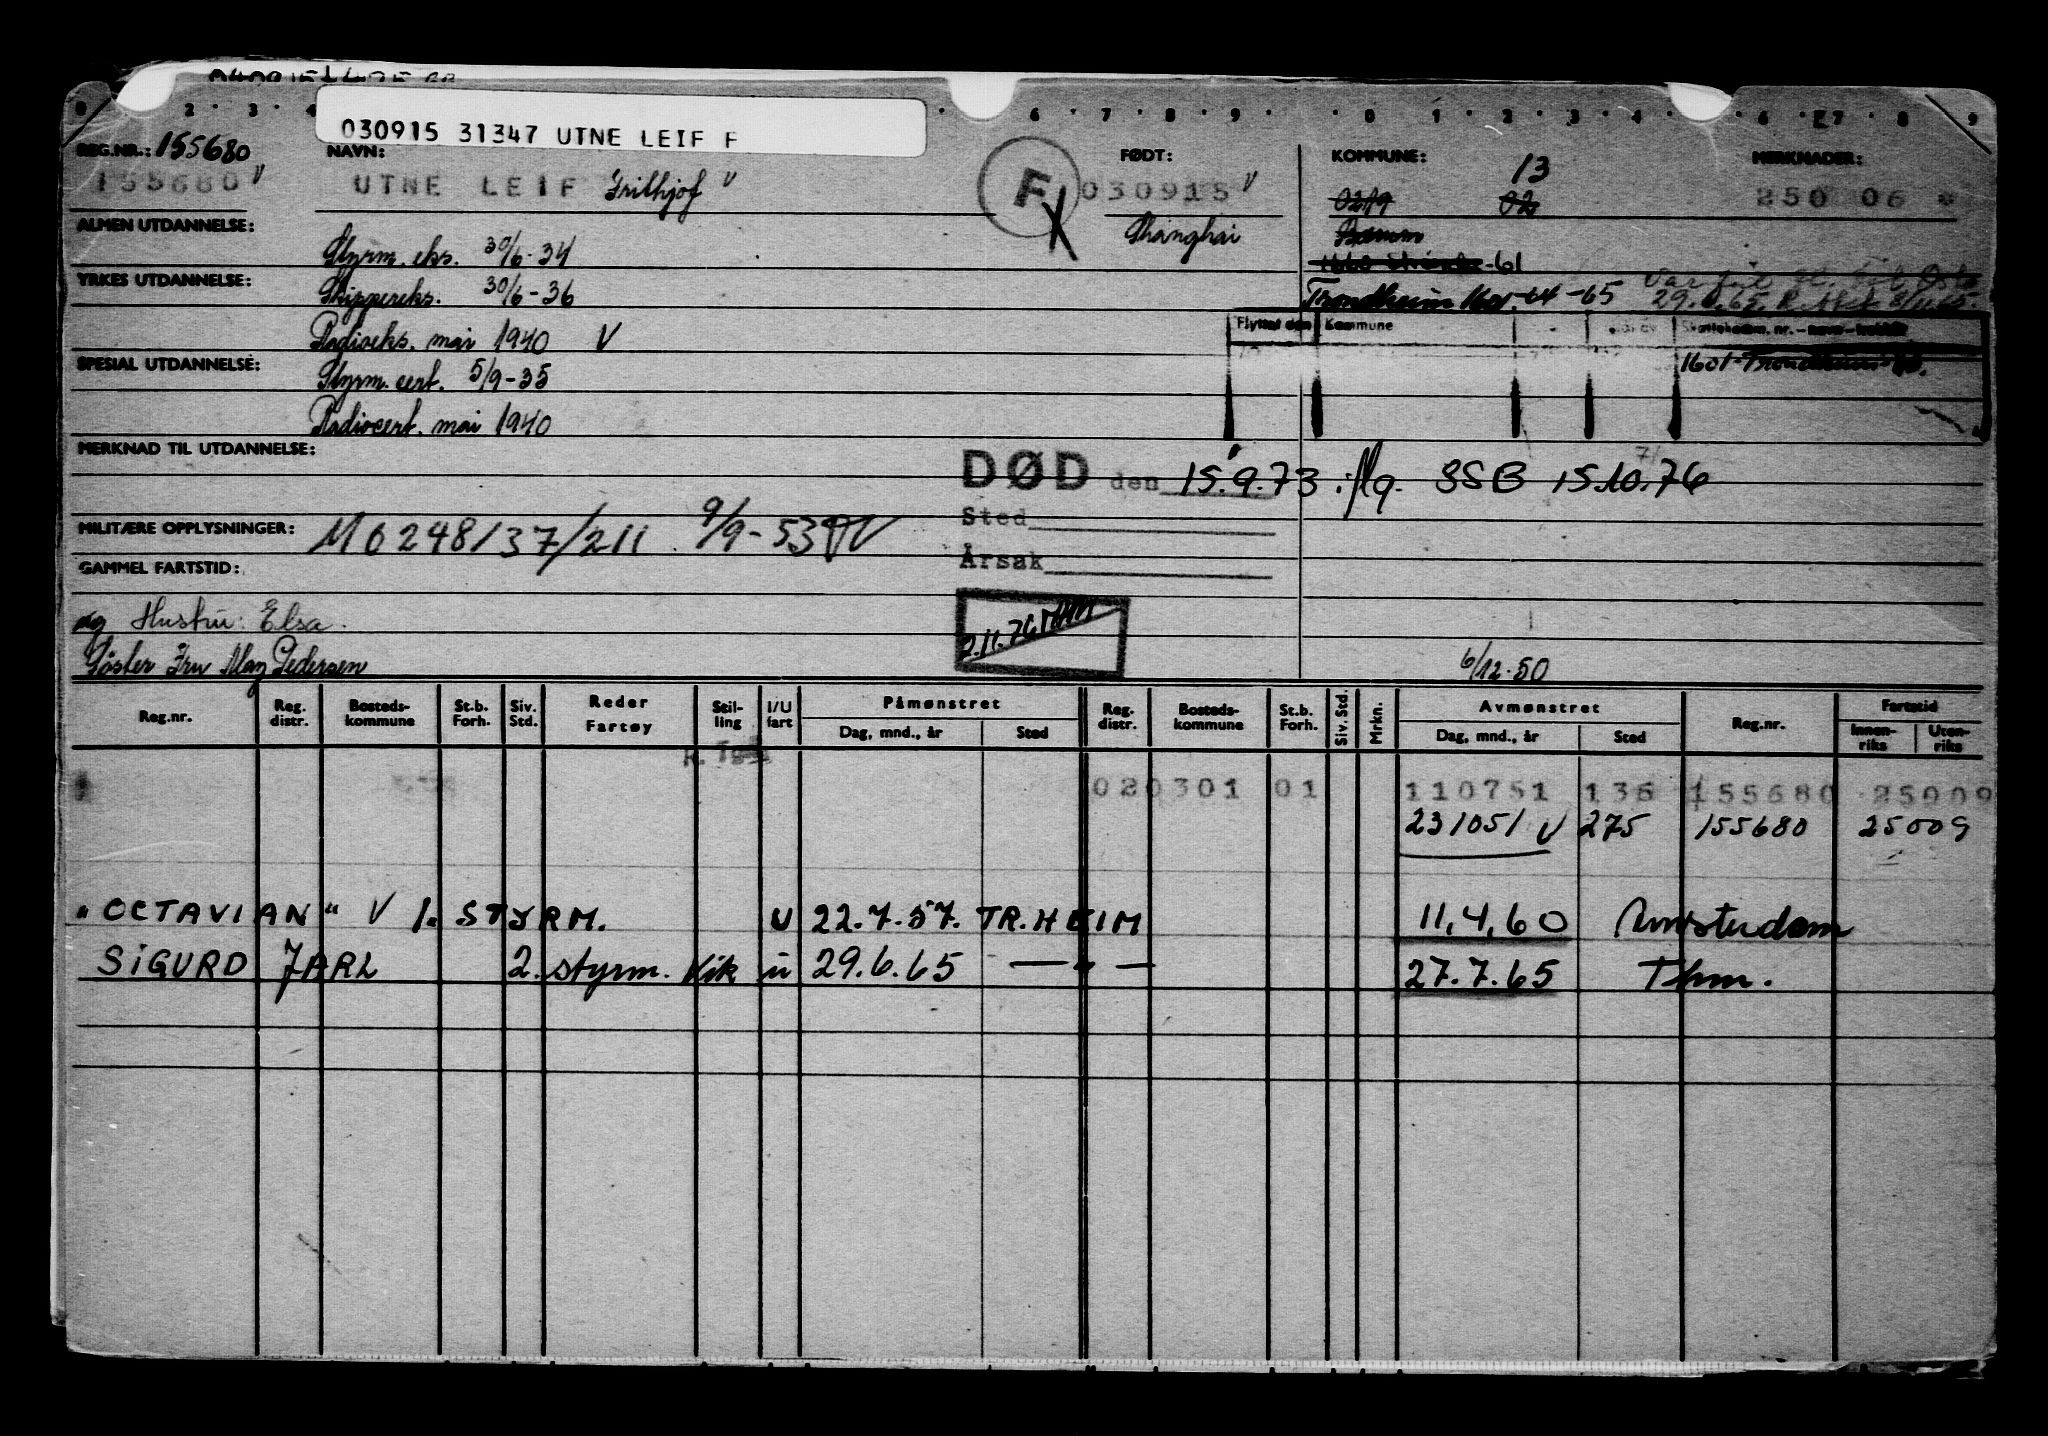 030915 31347 UTNE LEIF F
2 · 3 · 4 · 6 · 7 · 8 · 9 · · 0 · 1 · 2 · 3 · 4 · 6 · 7 · 8 9
REG.NR.: 155680 NAVN: FØDT: KOMMUNE: 13 MERKNADER:
155680 V UTNE LEIF Frithjof V F X 030915 V 0219 02 250 06
ALMEN UTDANNELSE: Shanghai
Styrm. eks. 30/6-34 -61
YRKES UTDANNELSE: Skippereks. 30/6-36 Trondheim 1601-64-65 29.6.65
Radioeks. mai 1940 V Flyttet den Kommune
SPESIAL UTDANNELSE: Styrm. cert. 5/9-35 1601 Trondheim
Radiocert. mai 1940
MERKNAD TIL UTDANNELSE:
DØD den 15.9.73 iflg. SSB 15.10.76
Sted
MILITÆRE OPPLYSNINGER: M 0248/37/211 9/9-53
Årsak
GAMMEL FARTSTID:
og Hustru: Elsa. 2.11.76
Søster Fru May Pedersen 6/12-50
Reg.nr. Reg. distr. Bosteds-kommune St.b. Forh. Siv. Std. Reder Fartøy Stil-ling I/U fart Påmønstret Dag, mnd., år Sted Reg. distr. Bosteds-kommune St.b. Forh. Siv. Std. Mrkn. Avmønstret Dag, mnd., år Sted Reg.nr. Fartstid Innen-riks Uten-riks
020301 01 110751 136 155680 25009
231051 V 275 155680 25009
"OCTAVIAN" V 1. STYRM. U 22.7.57. TR.HEIM 11.4.60 Amsterdam
SIGURD JARL 2. styrm. Vik u 29.6.65 — " — 27.7.65 Thm.